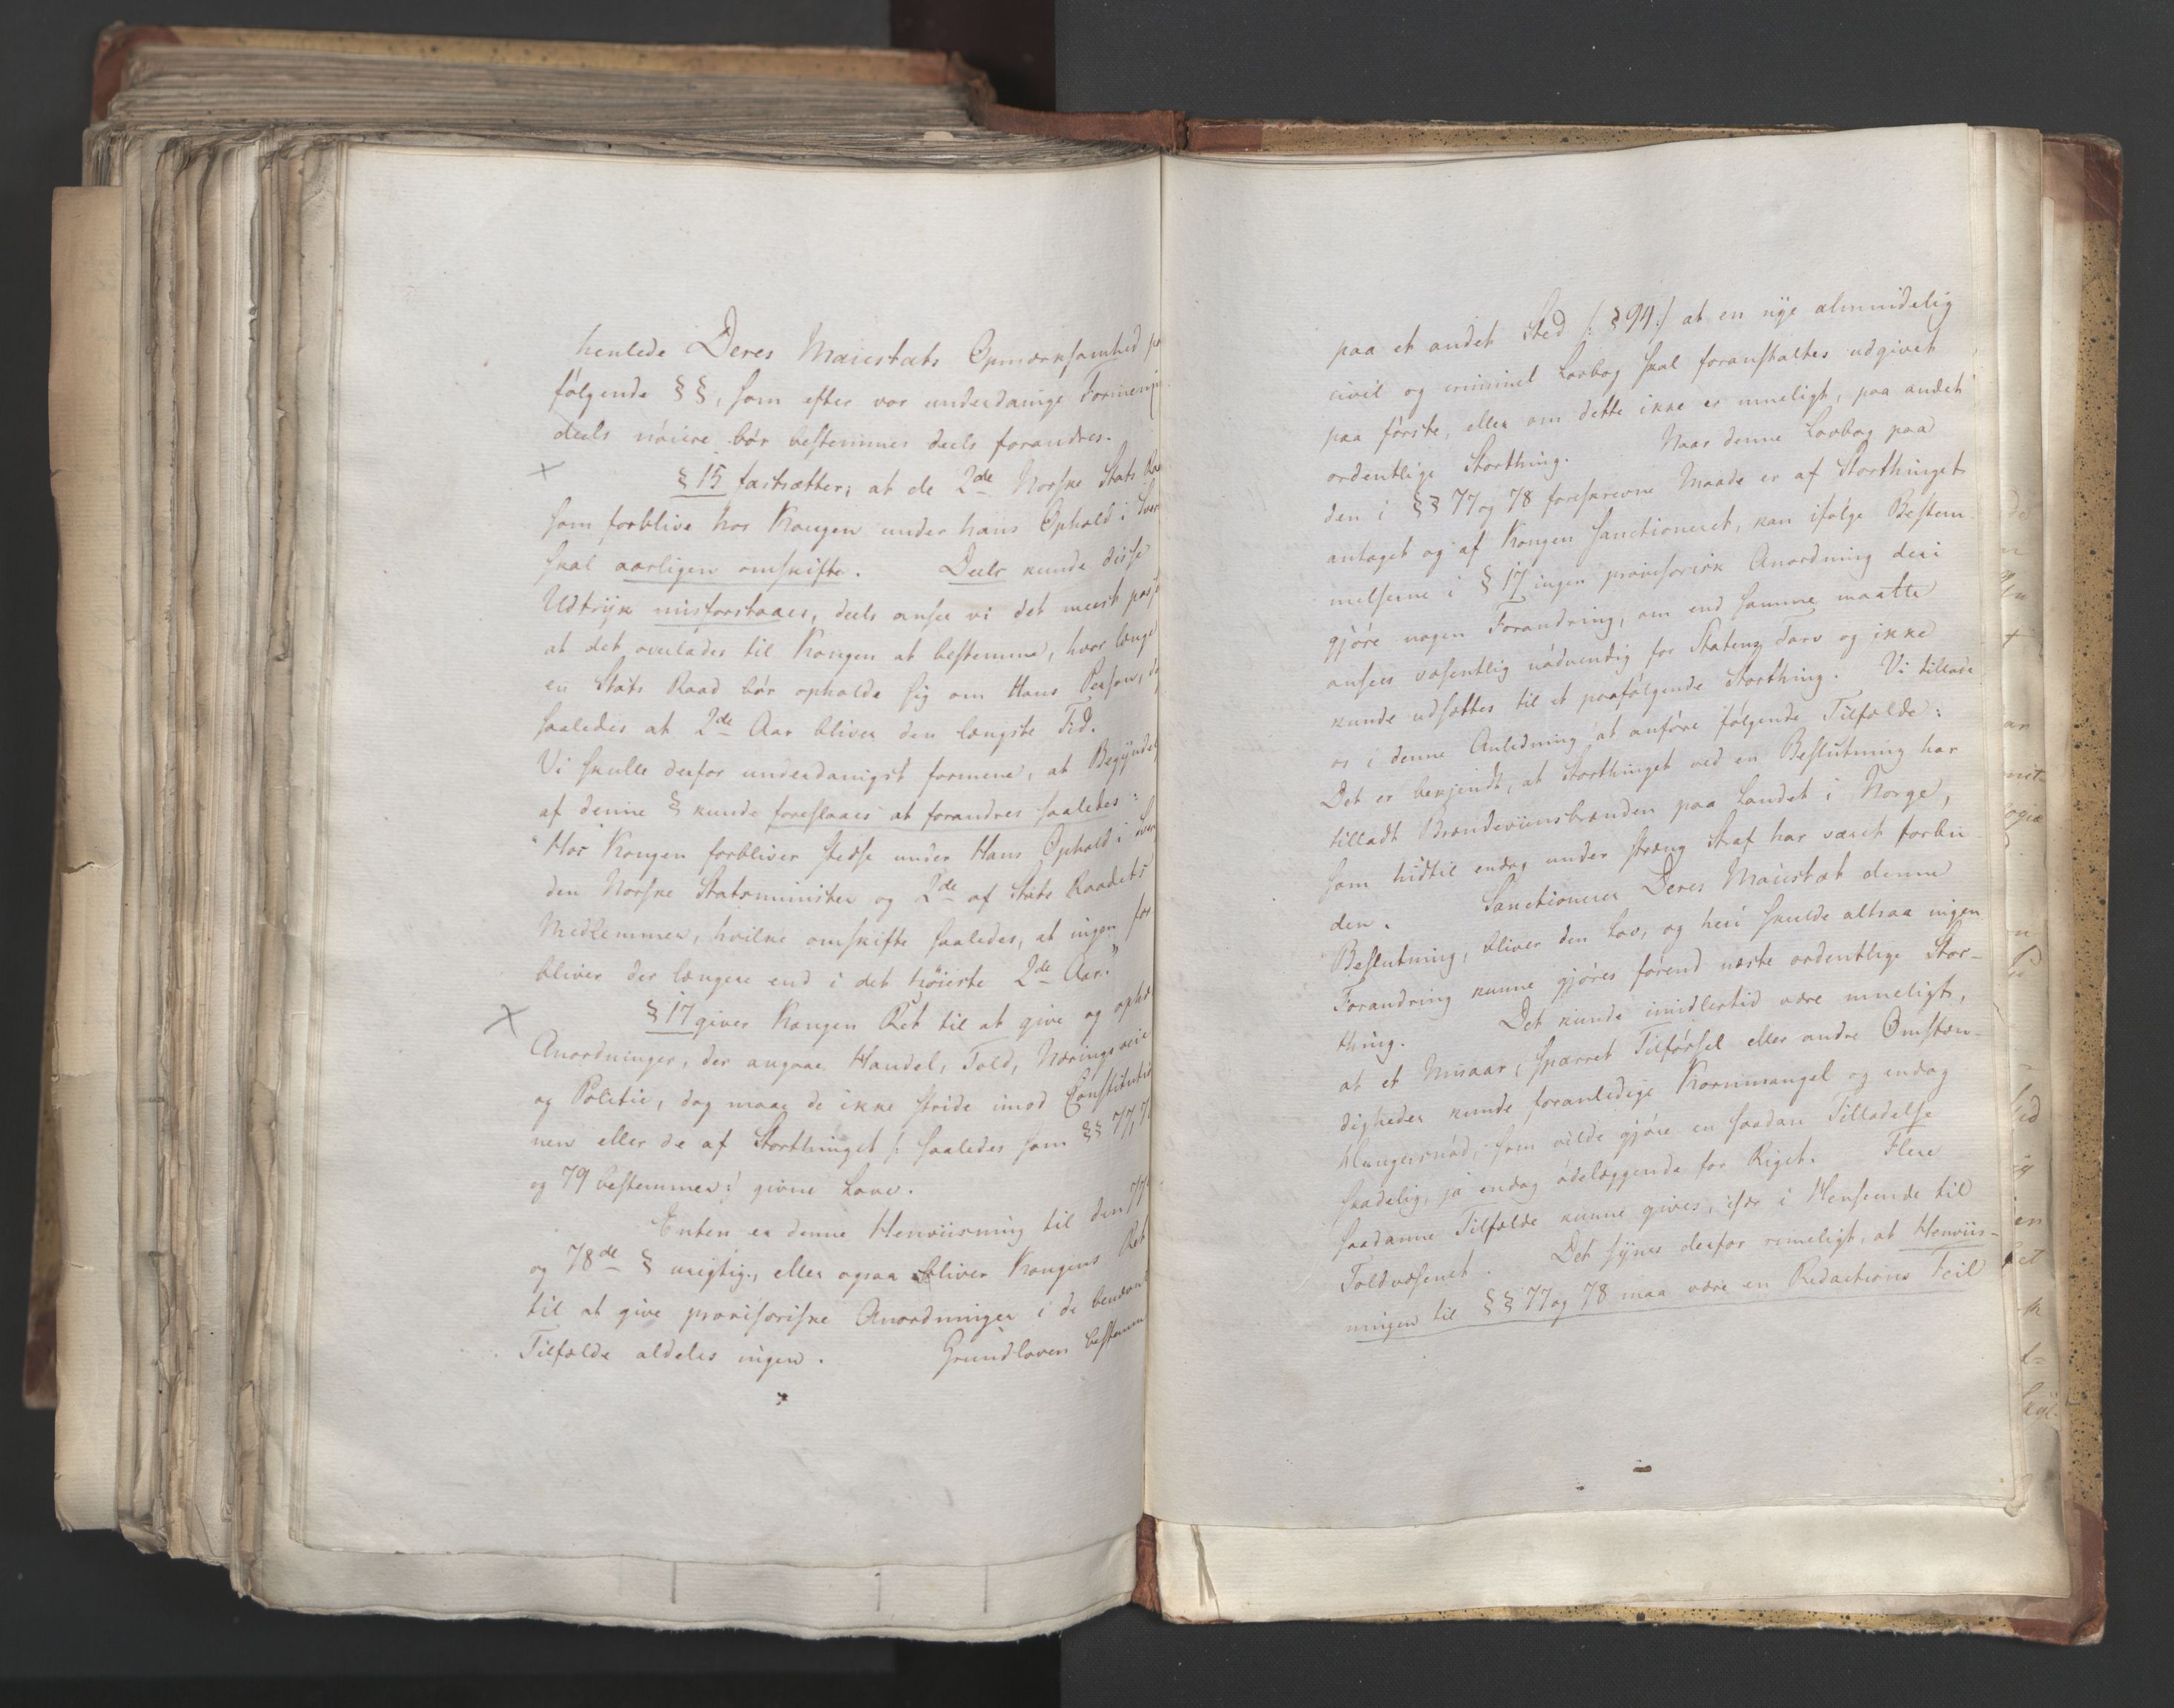 henlede Deres Maiestæts Opmærksomhed
følgende §§, som efter vor underdanige
deels nöiere bör bestemmes deels forandres.
× § 15 fastsætter; at de 2de Norske Stats
som forblive hos Kongen under hans Ophold i
skal aarligen omskifte. Deels kunde disse
Udtryk misforstaaes, deels ansee vi det meest
at det overlades til Kongen at bestemme, hvor længe
en Stats Raad bör opholde sig om Hans Person,
saaledes at 2de Aar bliver den længste Tid.
Vi skulle derfor underdanigst formene, at
af denne § kunde foreslaaes at forandres saaledes:
"Hos Kongen forbliver stedse under Hans Ophold i
den Norske Statsminister og 2de af Stats Raadets
Medlemmer, hvilke omskifte saaledes, at ingen
bliver der længere end i det höieste 2de Aar."
× § 17 giver Kongen Ret til at give og
Anordninger, der angaae Handel, Told, Næringsveie
og Politie, dog maae de ikke stride imod
nen eller de af Storthinget /: saaledes som §§ 77,
og 79 bestemmer :/ givne Love.
Enten er denne Henviisning til den 77
og 78de § urigtig, eller ogsaa bliver Kongens Ret
til at give provisoriske Anordninger i de
Tilfælde aldeles ingen. Grundloven
paa et andet Sted /: § 94 :/ at en nye almindelig
civil og criminel Lovbog skal foranstaltes udgivet
paa förste, eller om dette ikke er mueligt, paa andet
ordentlige Storthing. Naar denne Lovbog paa
den i §§ 77 og 78 foreskrevne Maade er af Storthinget
antaget og af Kongen sanctioneret, kan ifölge Bestem-
melserne i § 17 ingen provisorisk Anordning deri
gjöre nogen Forandring, om end samme maatte
ansees væsentlig nödvendig for Statens Tarv og ikke
kunde udsættes til et paafölgende Storthing. Vi tillade
os i denne Anledning at anföre fölgende Tilfælde:
Det er bekjendt, at Storthinget ved en Beslutning har
tilladt Brændeviinsbrænden paa Landet i Norge,
som hidtil endog under stræng Straf har været forbu-
den. Sanctionerer Deres Maiestæt denne
Beslutning, bliver den Lov, og heri skulde altsaa ingen
Forandring kunne gjöres förend næste ordentlige Stor-
thing. Det kunde imidlertid være mueligt,
at et Misaar, spærret Tilförsel eller andre Omstæn-
digheder kunde foranledige Kornmangel og endog
Hungersnöd, som vilde gjöre en saadan Tilladelse
skadelig, ja endog ödelæggende for Riget. Flere
saadanne Tilfælde kunne gives, især i Henseende til
Toldvæsenet. Det synes derfor rimeligt, at Henviis-
ningen til §§ 77 og 78 maa være en Redactions Feil